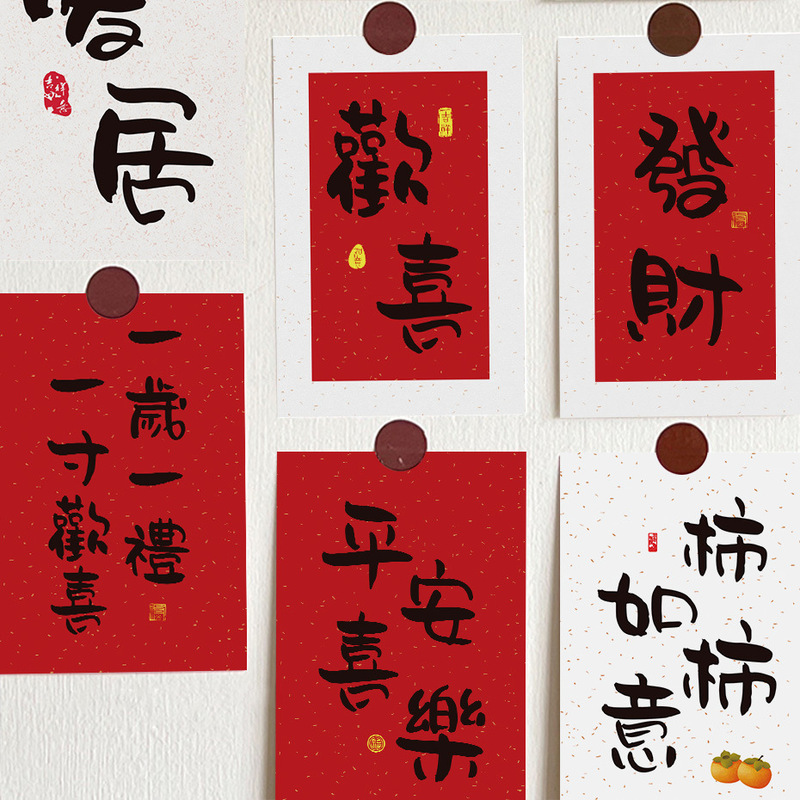 居
歡
喜
發
財
一歲一禮
一寸歡喜
平安
喜樂
柿柿
如意